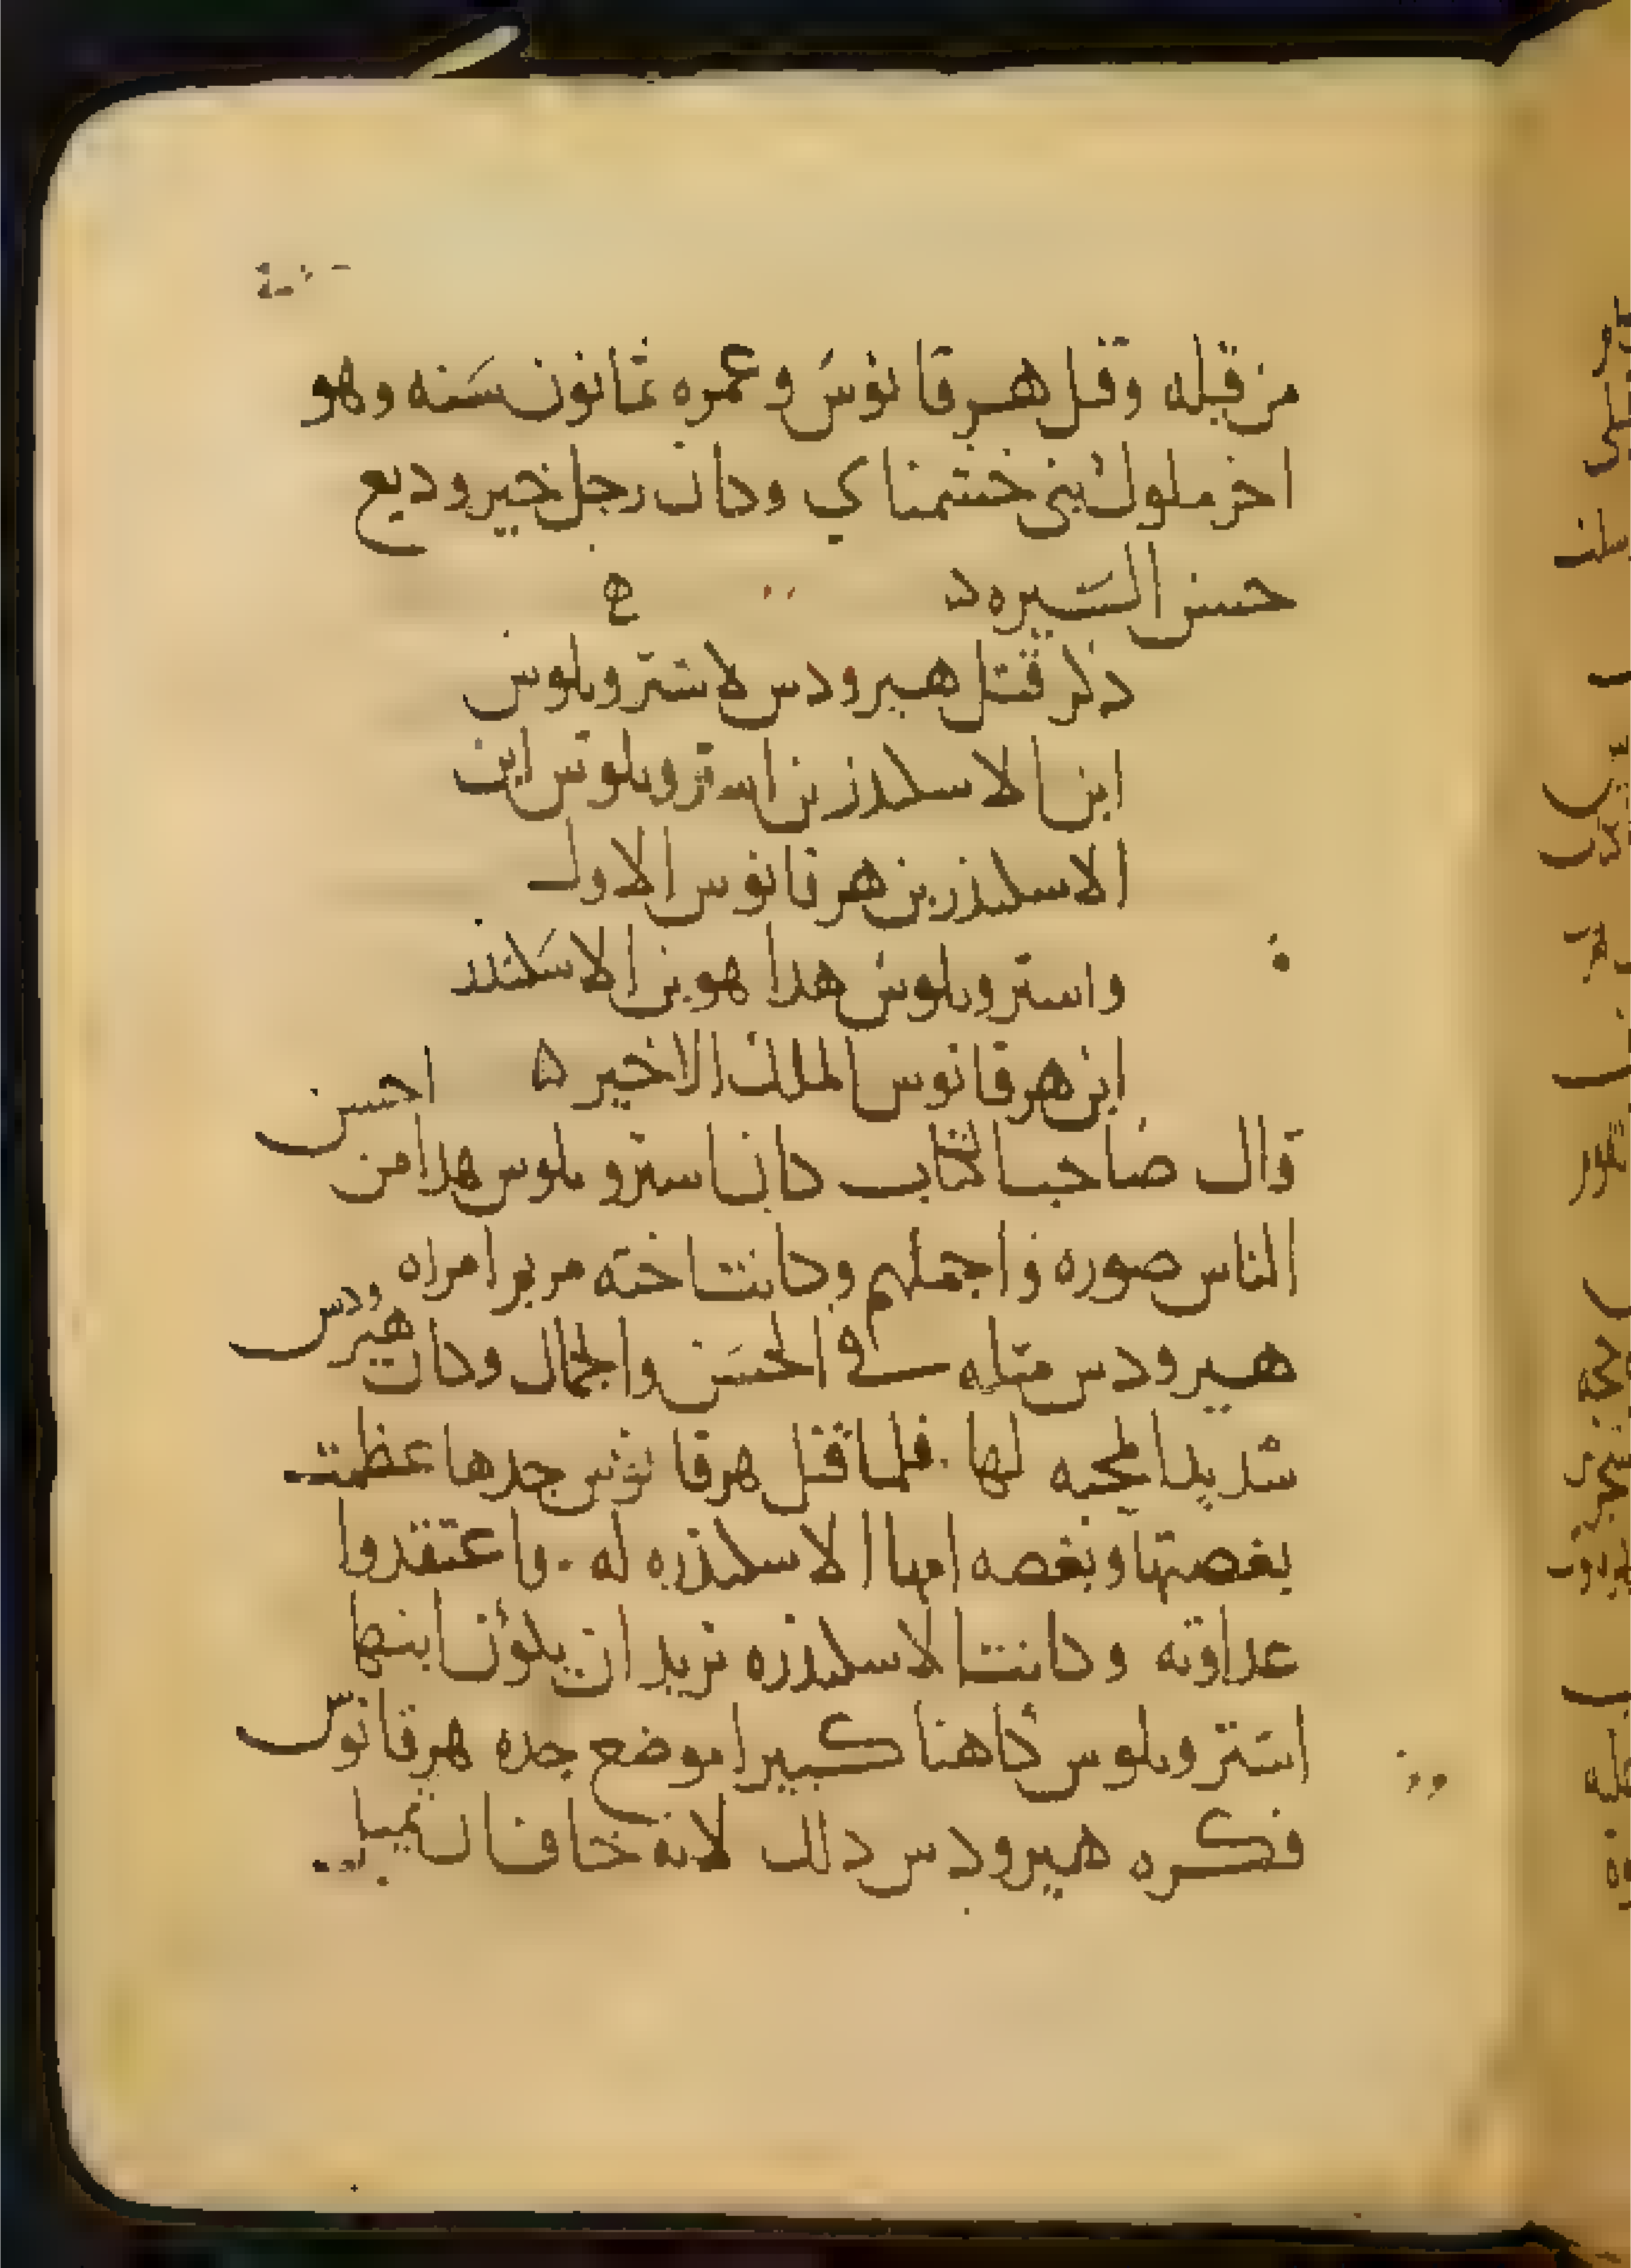 من قبله وقتل هرقانوس وعمره ثمانون سنه وهو
اخر ملوك بنى خشمناي وكان رجل خير وديع
حسن السيره
ذكر قتل هيرودس لاستروبلوس
ابن الاسكندر بن استروبلوس ابن
الاسكندر بن هرقانوس الاول
واستروبلوس هدا هو بن الاسكندر
ابن هرقانوس الملك الاخير ه
قال صاحب الكتاب كان استروبلوس هدا من احسن
الناس صوره واجملهم وكانت اخته مريم امراه
هيرودس مثله في الحسن والجمال وكان هيرودس
شديد المحبه لها . فلما قتل هرقانوس جدها عظمت
بغضتها وبغضه امها الاسكندره له . واعتقدوا
عداوته وكانت الاسكندره تريد ان يكون ابنها
استروبلوس كاهنا كبيرا موضع جده هرقانوس
فكره هيرودس دلك لانه خاف ان